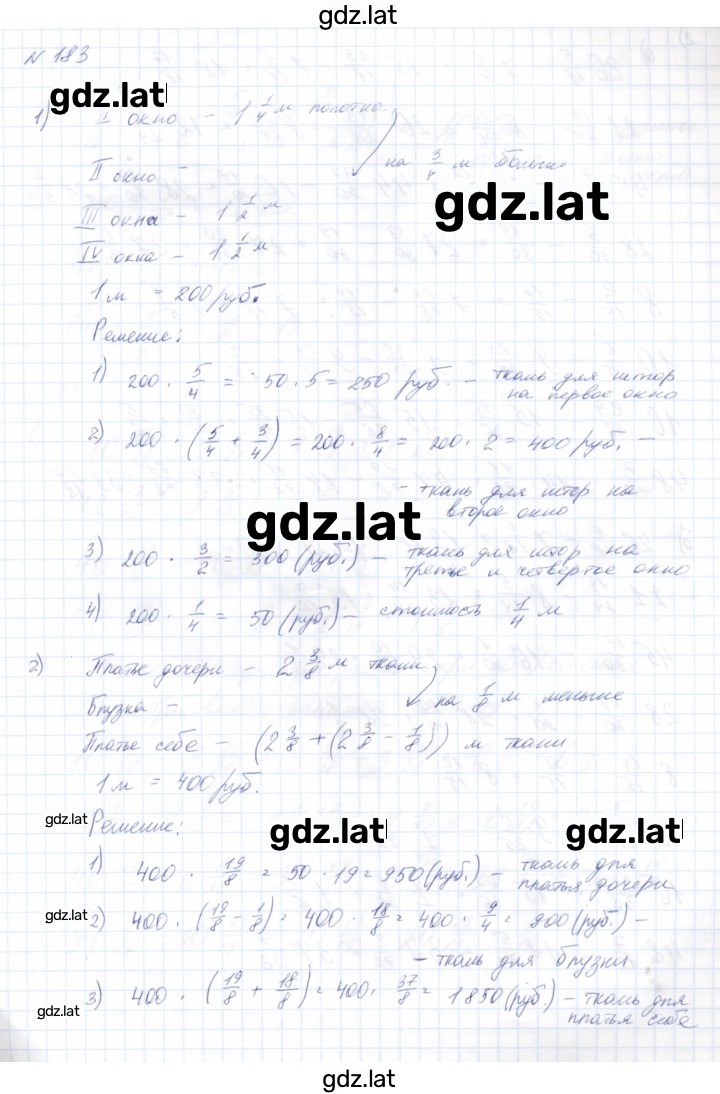 gdz.lat
N 183
gdz.lat
1) I окно – 1 1/4 м полотна
на 3/4 м больше
II окно –
gdz.lat
III окна – 1 1/2 м
IV окна – 1 1/2 м
1 м = 200 руб.
Решение:
1) 200 · 5/4 = 50 · 5 = 250 руб. – ткань для штор
на первое окно
2) 200 · (5/4 + 3/4) = 200 · 8/4 = 200 · 2 = 400 руб. –
– ткань для штор на
второе окно
gdz.lat
3) 200 · 3/2 = 300 (руб.) – ткань для штор на
третье и четвертое окно
4) 200 · 1/4 = 50 (руб.) – стоимость 1/4 м
2) Платье дочери – 2 3/8 м ткани
на 1/8 м меньше
Блузка –
Платье себе – (2 3/8 + (2 3/8 – 1/8)) м ткани
1 м = 400 руб.
gdz.lat
Решение:
gdz.lat
gdz.lat
1) 400 · 19/8 = 50 · 19 = 950 (руб.) – ткань для
платья дочери
gdz.lat
2) 400 · (19/8 – 1/8) = 400 · 18/8 = 400 · 9/4 = 900 (руб.) –
– ткань для блузки
3) 400 · (19/8 + 18/8) = 400 · 37/8 = 1850 (руб.) – ткань для
платья себе
gdz.lat
gdz.lat